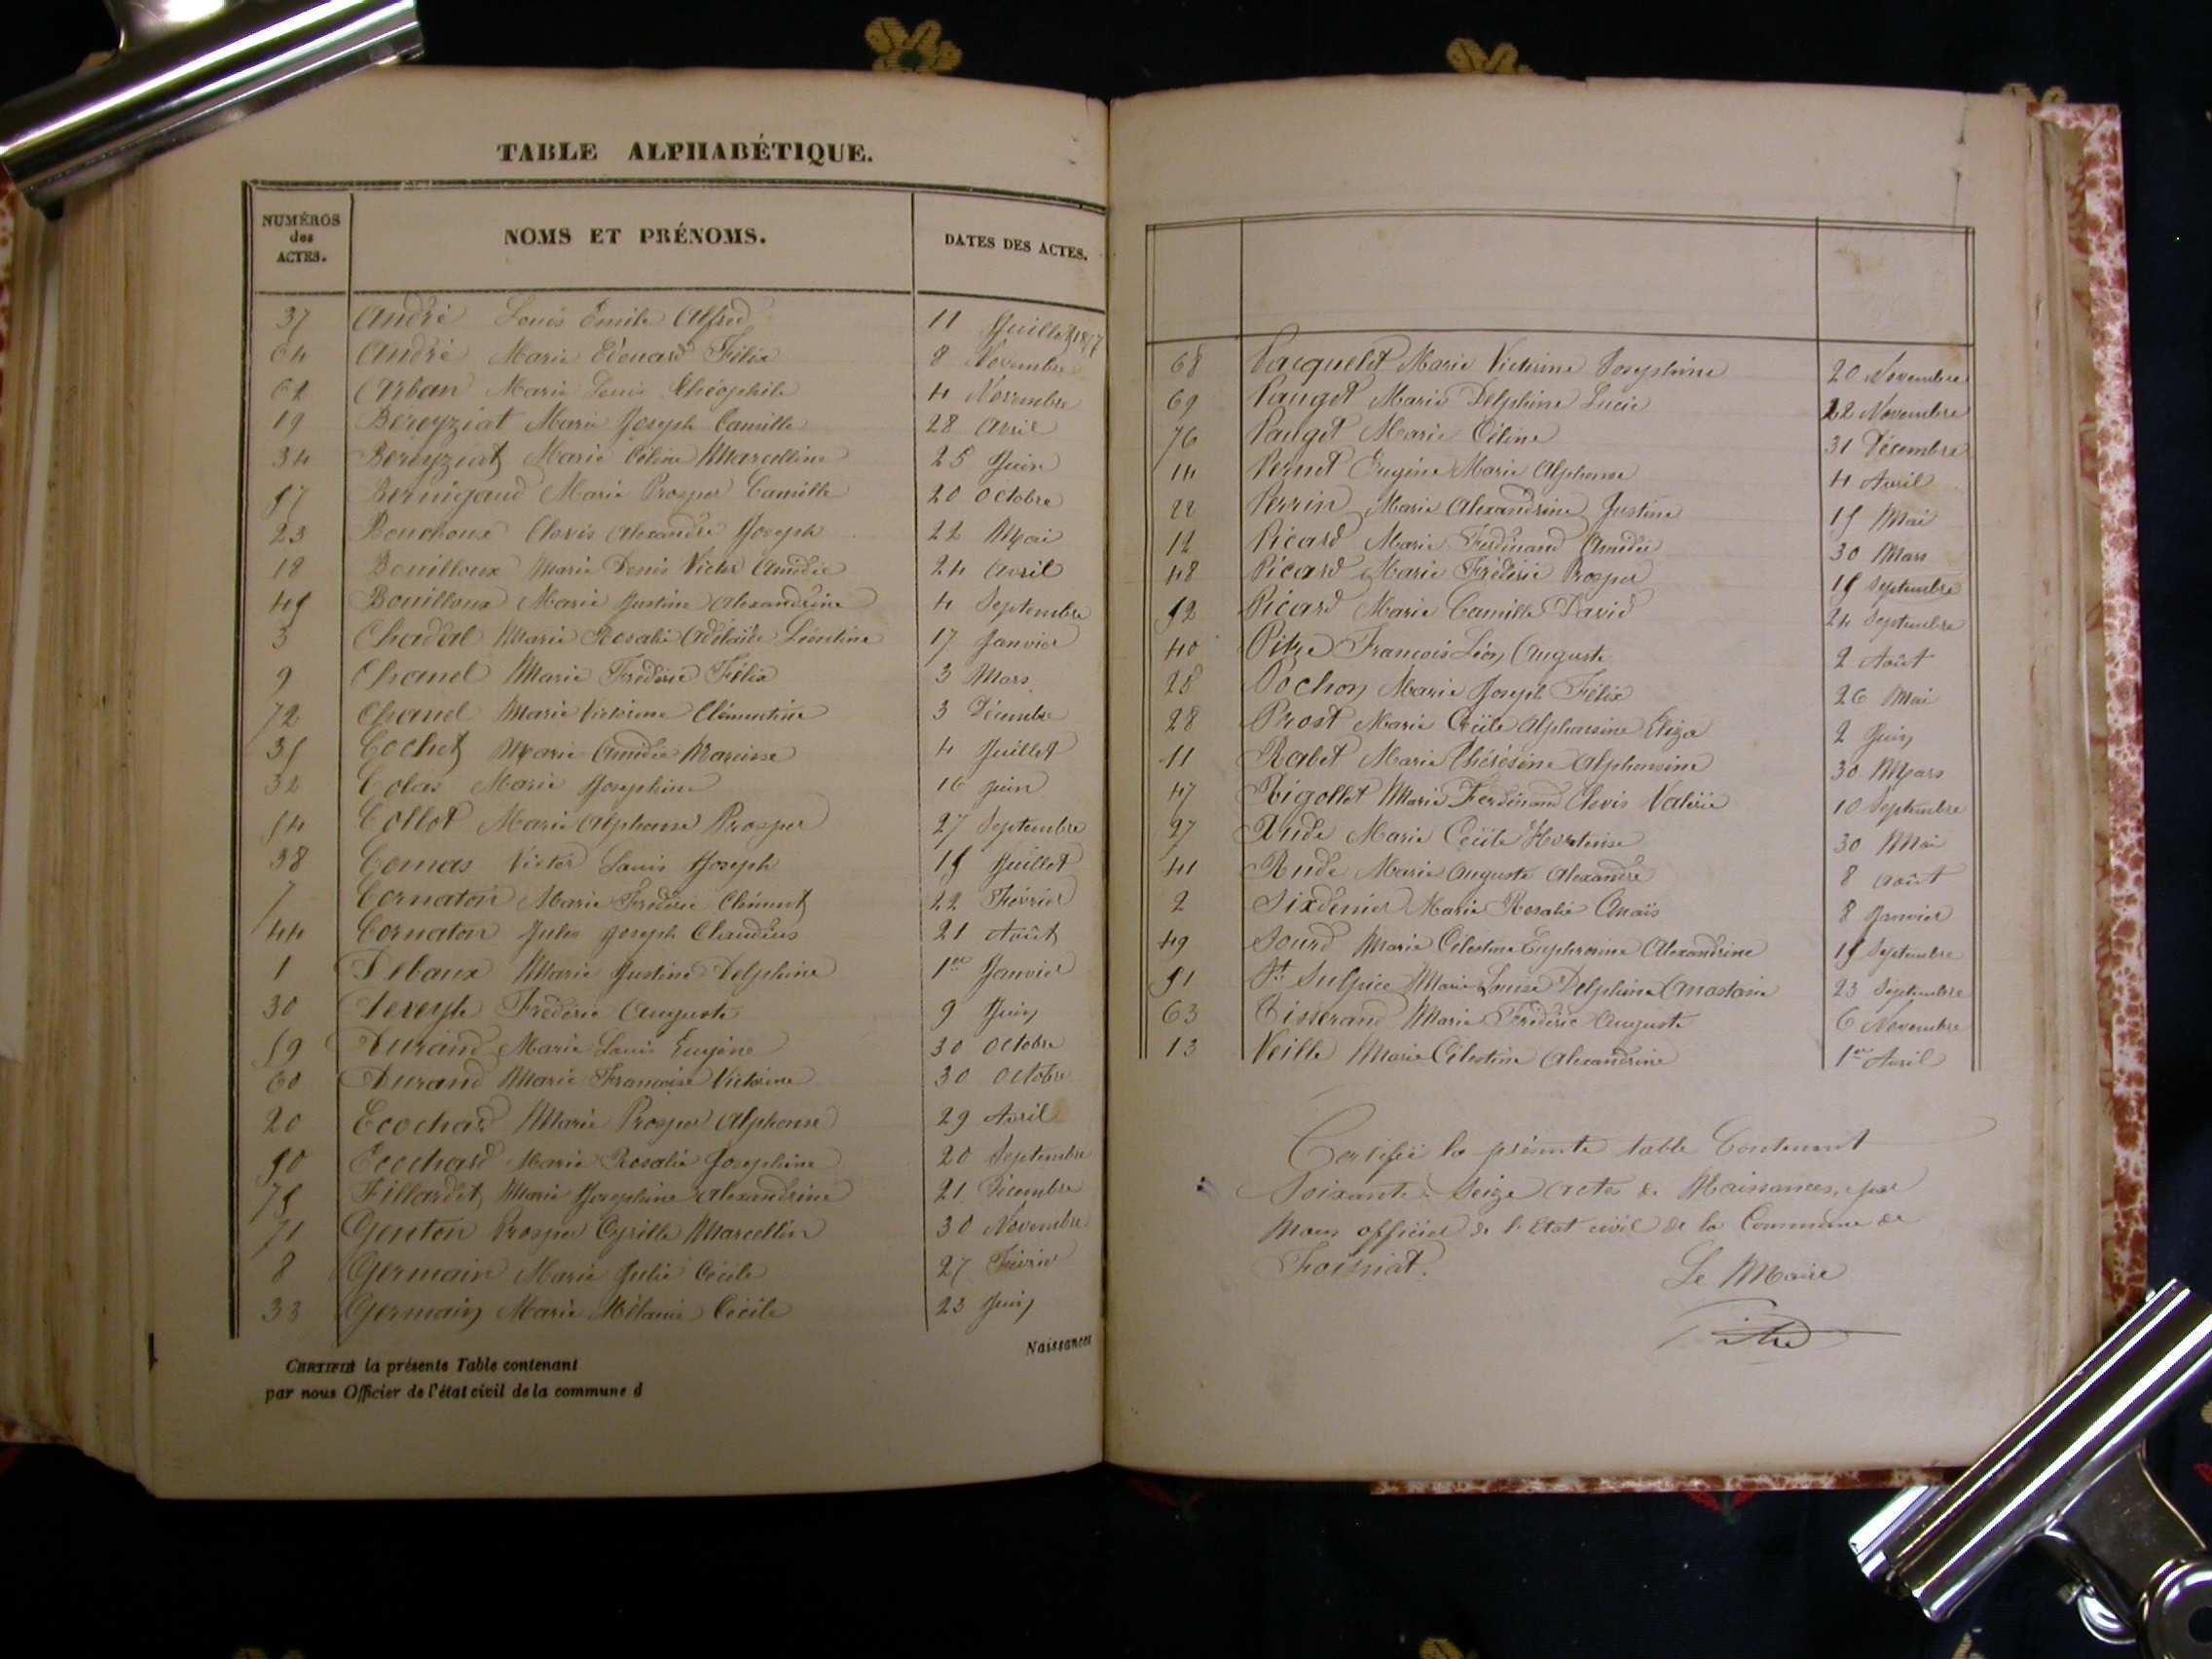 TABLE ALPHABÉTIQUE.
NUMÉROS des ACTES. NOMS ET PRÉNOMS. DATES DES ACTES.
37 André Louis Emile Alfred 11 Juillet
64 André Marie Edouard Félix 8 Novembre
62 Arban Marie Louis Théophile 4 Novembre
19 Béreyziat Marie Joseph Camille 28 Avril
34 Béreyziat Marie Céline Marcelline 25 Juin
57 Bernigaud Marie Prosper Camille 20 Octobre
23 Bouchoux Clovis Alexandre Joseph 22 Mai
18 Bouilloux Marie Denis Victor Amédée 24 Avril
45 Bouilloux Marie Justine Alexandrine 4 Septembre
3 Chadal Marie Rosalie Adélaïde Léontine 17 Janvier
9 Chanel Marie Frédéric Félix 3 Mars
72 Chanel Marie Victorine Clémentine 3 Décembre
35 Cochet Marie Amédée Narcisse 4 Juillet
32 Colas Marie Josephine 16 Juin
54 Collot Marie Alphonse Prosper 27 Septembre
38 Comas Victor Louis Joseph 15 Juillet
7 Cornaton Marie Frédéric Clément 22 Février
44 Cornaton Jules Joseph Claudius 21 Août
1 Debaux Marie Justine Delphine 1er Janvier
30 Frédéric Auguste 9 Juin
59 Durand Marie Louis Eugène 30 Octobre
60 Durand Marie Françoise Victorine 30 Octobre
20 Ecochard Marie Prosper Alphonse 29 Avril
50 Ecochard Marie Rosalie Josephine 20 Septembre
75 Fillardet Marie Josephine Alexandrine 21 Décembre
71 Genton Prosper Cyrille Marcellin 30 Novembre
8 Germain Marie Julie Cécile 27 Février
33 Germain Marie Mélanie Cécile 23 Juin
Naissances
CERTIFIÉ la présente Table contenant
par nous Officier de l'état civil de la commune d
68 Pacquelet Marie Victorine Josephine 20 Novembre
69 Pauget Marie Delphine Lucie 22 Novembre
76 Pauget Marie Céline 31 Décembre
14 Pernet Eugène Marie Alphonse 4 Avril
22 Perrin Marie Alexandrine Justine 15 Mai
12 Picard Marie Ferdinand Amédée 30 Mars
48 Picard Marie Frédéric Prosper 15 Septembre
52 Picard Marie Camille David 24 Septembre
40 Pitre François Léon Auguste 2 Août
28 Pochon Marie Joseph Félix 26 Mai
28 Prost Marie Cécile Alphonsine Eliza 2 Juin
11 Rabet Marie Thérésine Alphonsine 30 Mars
47 Rigollet Marie Ferdinand Clovis Valérie 10 Septembre
27 Rude Marie Cécile Hortense 30 Mai
41 Rude Marie Auguste Alexandre 8 Août
2 Sixdenier Marie Rosalie Anaïs 8 Janvier
49 Sourd Marie Célestine Euphrosine Alexandrine 15 Septembre
51 St Sulpice Marie Louise Delphine Anastasie 23 Septembre
63 Tisserand Marie Frédéric Auguste 6 Novembre
13 Veille Marie Célestine Alexandrine 1er Avril
Certifié la présente table Contenant
Soixante Seize actes de Naissances, par
Nous officier de l'Etat civil de la Commune de
Foissiat.
Le Maire